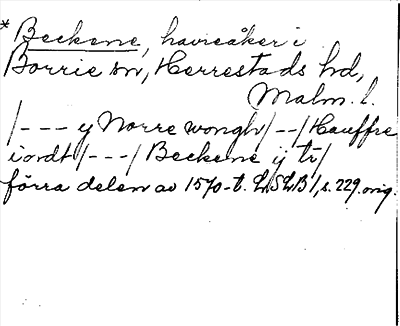 * Beckene, havreåker i
Borrie sn, Herrestads hd,
Malm. l.
/--- y Norre wongh/--/Hauffre
iordt/---/Beckene ij tr/
förra delen av 1570-t. LSLB 1, s. 229. orig.